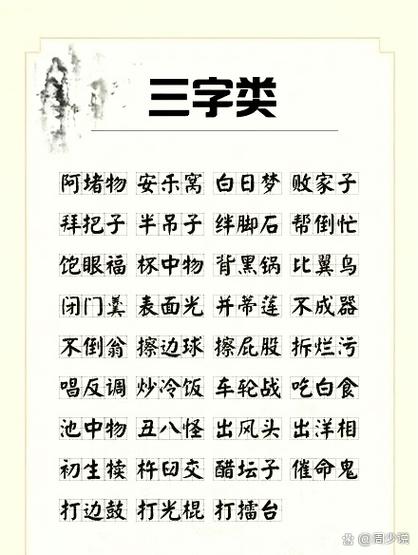 三字类
阿堵物 安乐窝 白日梦 败家子
拜把子 半吊子 绊脚石 帮倒忙
饱眼福 杯中物 背黑锅 比翼鸟
闭门羹 表面光 并蒂莲 不成器
不倒翁 擦边球 擦屁股 拆烂污
唱反调 炒冷饭 车轮战 吃白食
池中物 丑八怪 出风头 出洋相
初生犊 杵臼交 醋坛子 催命鬼
打边鼓 打光棍 打擂台